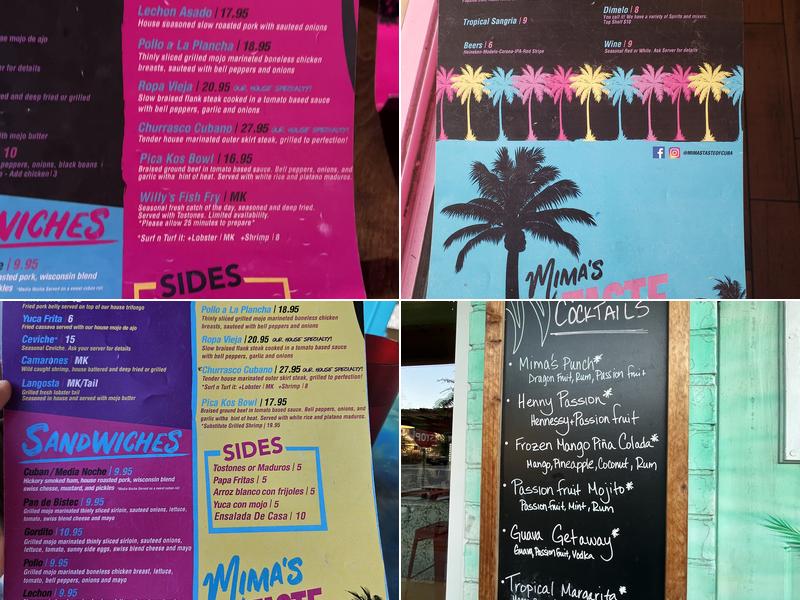 Lechon Asado | 17.95
House seasoned slow roasted pork with sauteed onions
Pollo a La Plancha | 18.95
Thinly sliced grilled mojo marineted boneless chicken
breasts, sauteed with bell peppers and onions
Ropa Vieja | 20.95 OUR HOUSE SPECIALTY!
Slow braised flank steak cooked in a tomato based sauce
with bell peppers, garlic and onions
Churrasco Cubano | 27.95 OUR HOUSE SPECIALTY!
Tender house marinated outer skirt steak, grilled to perfection!
Pica Kos Bowl | 16.95
Braised ground beef in tomato based sauce. Bell peppers, onions, and
garlic witha hint of heat. Served with white rice and platano maduros.
Willy's Fish Fry | MK
Seasonal fresh catch of the day, seasoned and deep fried.
Served with Tostones. Limited availability.
*Please allow 25 minutes to prepare*
*Surf n Turf it: +Lobster | MK +Shrimp | 8
SIDES
de mojo de ajo
for details
ed and deep fried or grilled
with mojo butter
10
peppers, onions, black beans
- Add chicken|3
WICHES
| 9.95
asted pork, wisconsin blend
kles *Media Noche Served on a sweet cuban roll
Tropical Sangria | 9
Dimelo | 8
You call it! We have a variety of Spirits and mixers.
Top Shelf $10
Beers | 6
Heineken-Modelo-Corona-IPA-Red Stripe
Wine | 9
Seasonal Red or White. Ask Server for details
@MIMASTASTEOFCUBA
MIMA'S
TASTE
Fried pork belly served on top of our house trifongo
Yuca Frita | 6
Fried cassava served with our house mojo de ajo
Ceviche* | 15
Seasonal Ceviche. Ask your server for details
Camarones | MK
Wild caught shrimp, house battered and deep fried or grilled
Langosta | MK/Tail
Grilled fresh lobster tail
Seasoned in house and served with mojo butter
SANDWICHES
Cuban / Media Noche | 9.95
Hickory smoked ham, house roasted pork, wisconsin blend
swiss cheese, mustard, and pickles *Media Noche Served on a sweet cuban roll
Pan de Bistec | 9.95
Grilled mojo marinated thinly sliced sirloin, sauteed onions, lettuce,
tomato, swiss blend cheese and mayo
Gordito | 10.95
Grilled mojo marinated thinly sliced sirloin, sauteed onions,
lettuce, tomato, sunny side eggs, swiss blend cheese and mayo
Pollo | 9.95
Grilled mojo marinated boneless chicken breast, lettuce,
tomato, bell peppers, onions and mayo
Lechon | 9.95
Pollo a La Plancha | 18.95
Thinly sliced grilled mojo marineted boneless chicken
breasts, sauteed with bell peppers and onions
Ropa Vieja | 20.95 OUR HOUSE SPECIALTY!
Slow braised flank steak cooked in a tomato based sauce
with bell peppers, garlic and onions
Churrasco Cubano | 27.95 OUR HOUSE SPECIALTY!
Tender house marinated outer skirt steak, grilled to perfection!
*Surf n Turf it: +Lobster | MK +Shrimp | 8
Pica Kos Bowl | 17.95
Braised ground beef in tomato based sauce. Bell peppers, onions, and
garlic witha hint of heat. Served with white rice and platano maduros.
*Substitute Grilled Shrimp | 19.95
SIDES
Tostones or Maduros | 5
Papa Fritas | 5
Arroz blanco con frijoles | 5
Yuca con mojo | 5
Ensalada De Casa | 10
MIMA'S
TASTE
COCKTAILS
Mima's Punch*
Dragon Fruit, Rum, Passion fruit
Henny Passion*
Hennessy+Passion fruit
Frozen Mango Piña Colada*
Mango, Pineapple, Coconut, Rum
Passion fruit Mojito*
Passion fruit, Mint, Rum
Guava Getaway*
Guava, Passion Fruit, Vodka
Tropical Margarita*